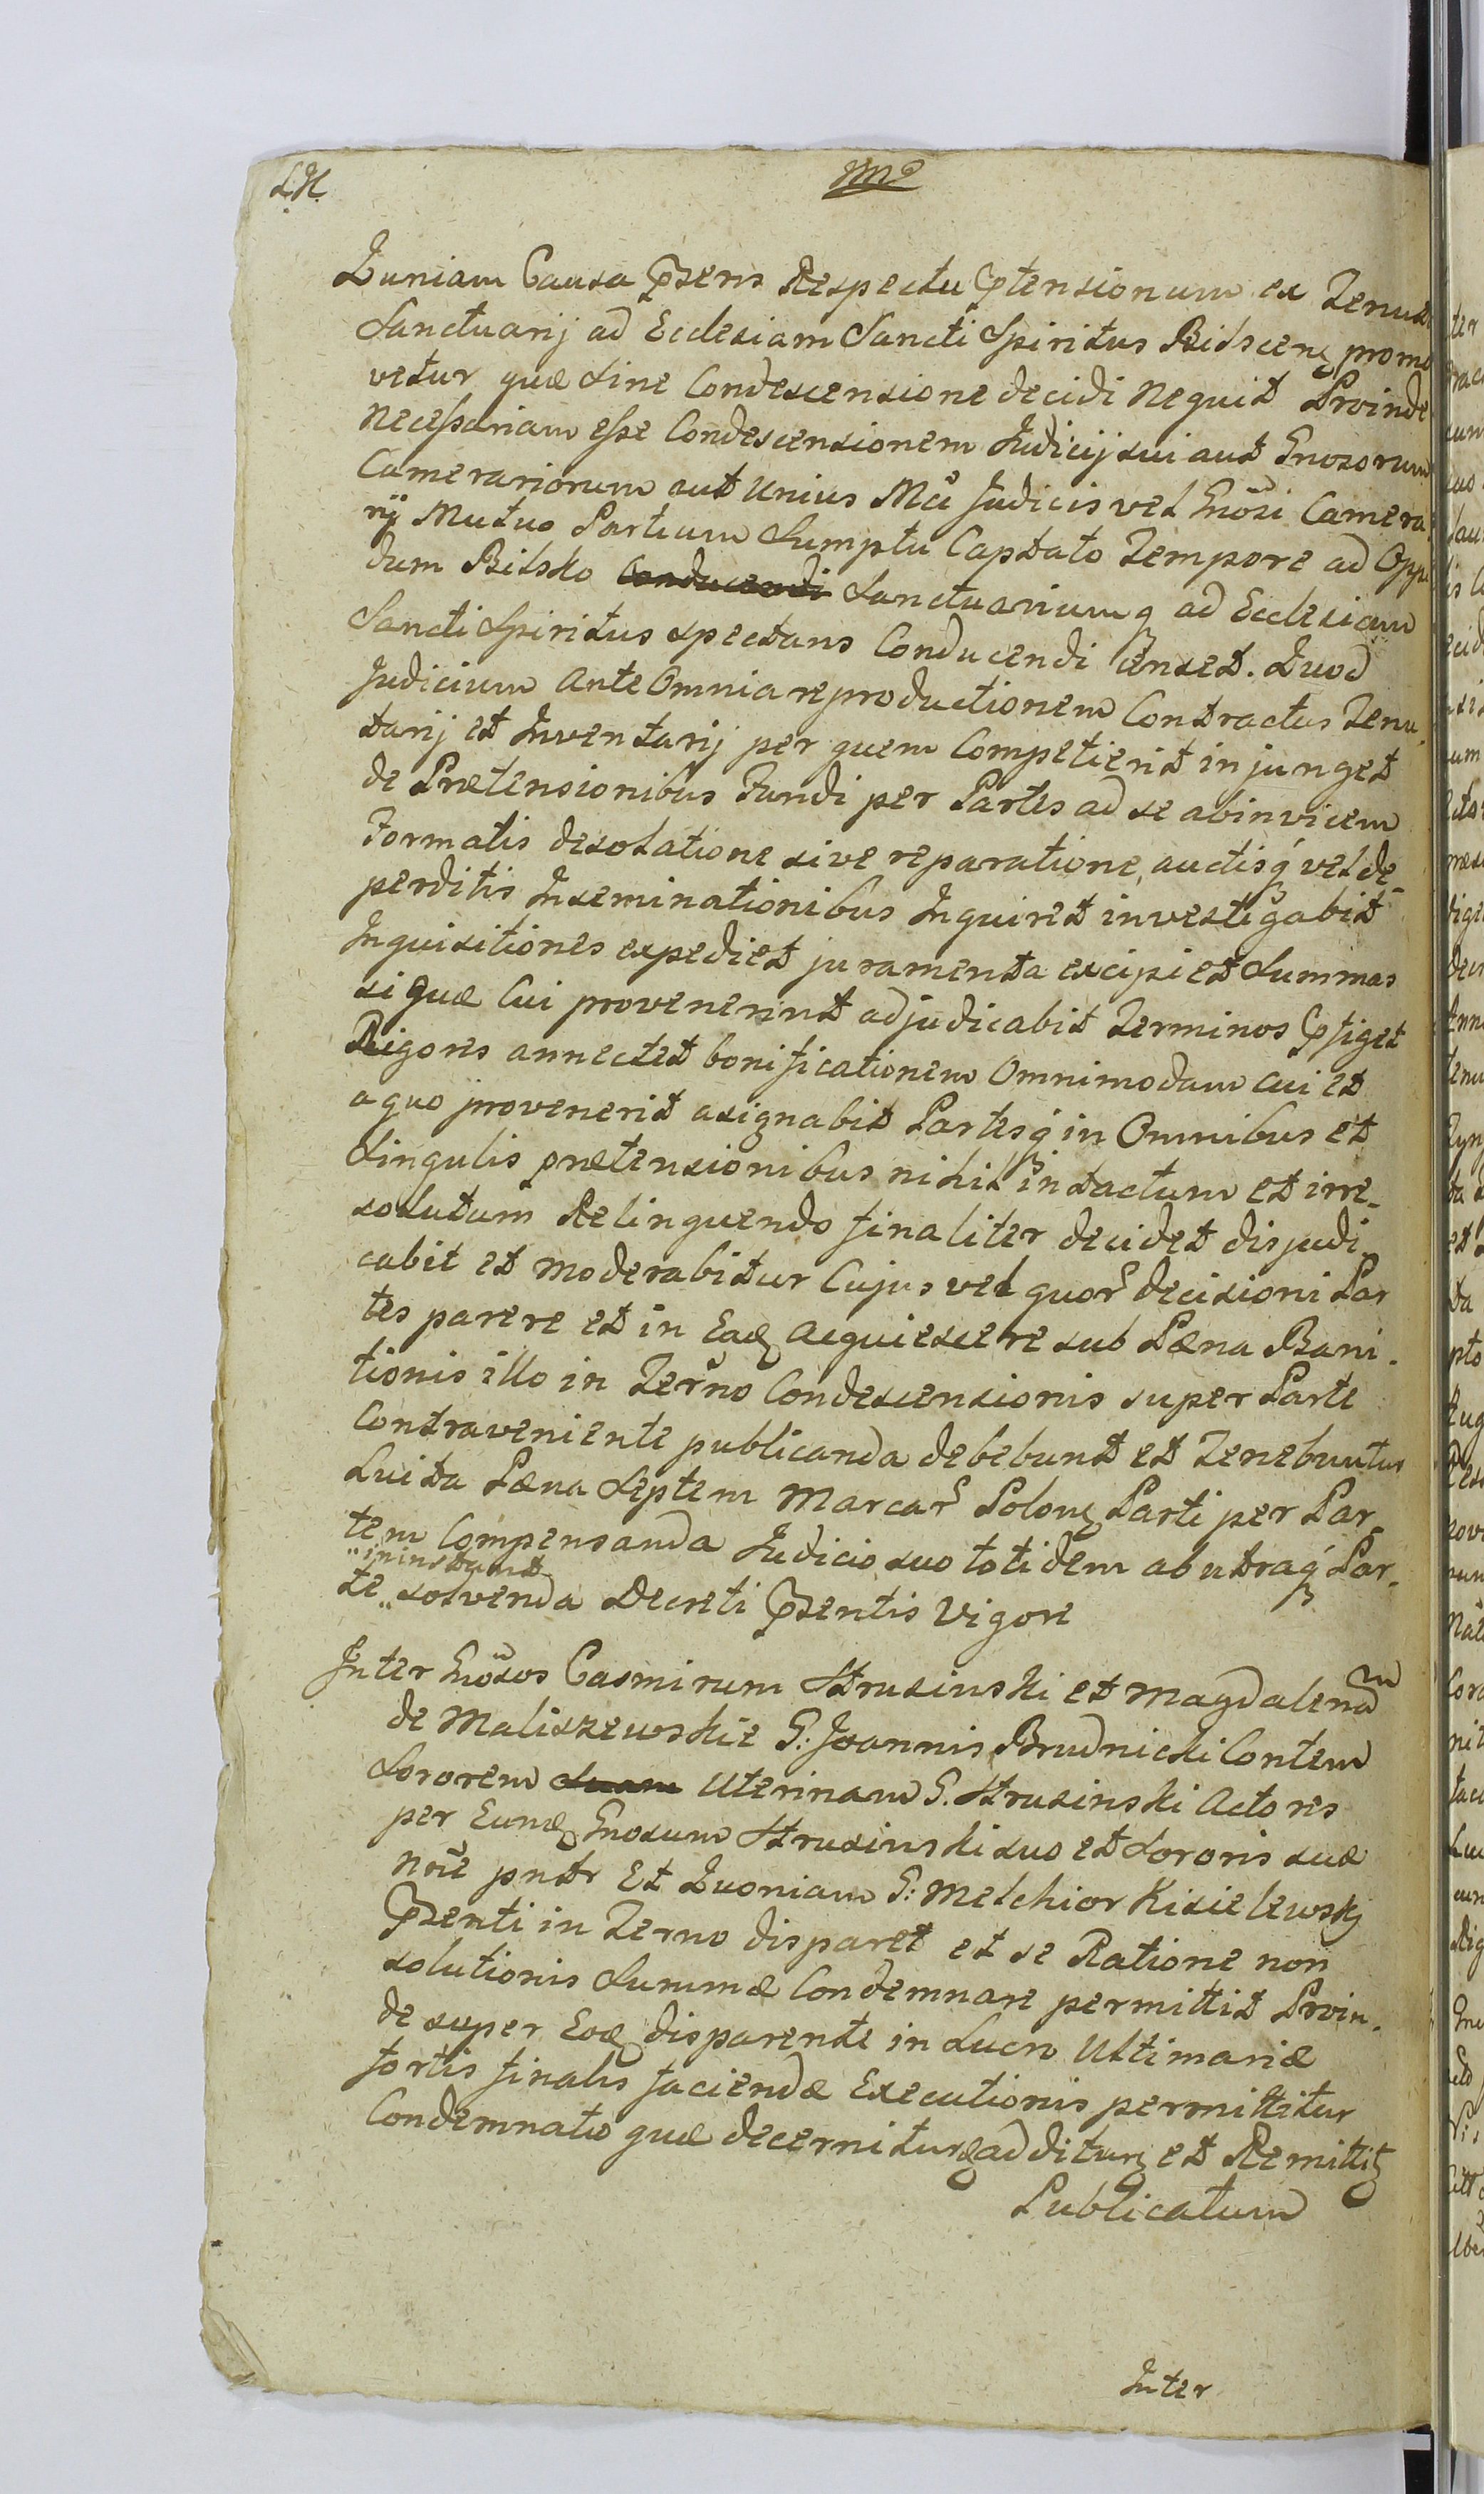 L.N.
Quoniam Causa Præsens Respectu Prætensionum ex Tenuta
Sanctuarij ad Ecclesiam Sancti Spiritus Bilscenę promo
vetur quæ Sine Condescensione decidi Nequit Proinde
Necessariam esse Condescensionem Judicij sui aut Gnosorum
Camerariorum aut Unius Mci Judicis vel Gnosi Camera
rij Mutuo Partium Sumptu Captato Tempore ad Oppi
dum Bilsko Conducendi Sanctuariumq ad Ecclesiam
Sancti Spiritus spectans Conducendi Censet. Quod
Judicium ante Omnia reproductionem Contractus Tenu
tarij et Inventarij per quem Competierit injunget
de Prætensionibus Fundi per Partes ad se abinvicem
Formatis desolatione sive reparatione, auctisq vel de-
perditis Inseminationibus Inquiret investigabit
Inquisitiones expediet juramenta excipiet Summas
si quæ Cui provenerint adjudicabit Terminos Præfiget
Rigores annectet bonificationem Omnimodam cui et
a quo provenerit asignabit Partesq in Omnibus et
Singulis prætensionibus nihil intactum et irre-
solutum Relinquendo finaliter decidet disjudi
cabit et moderabitur Cujus vel quor decisioni Par
tes parere et in Eadę Acquiescere sub Pæna Bani-
tionis illo in Terno Condescensionis super Parte
Contraveniente publicanda debebunt et Tenebuntur
Luita Pæna Septem Marcar Polonę Parti per Par-
tem Compensanda Judicio suo totidem ab utraq Par-
in instanti
te solvenda Decreti Præsentis Vigore
Inter Gnosos Casmirum Strusinski et Magdalenam
de Maliszewskie G: Joannis Brudnicki Contem
Sororem Suam Uterinam G. Strusinski Actores
per Eundę Gnosum Strusinski suo et Sororis suæ
Noie pntr Et Quoniam G: Melchior Kisielewskj
Præsenti in Terno disparet et se Ratione non
solutionis Summæ Condemnare permittit Proin-
de super Eodę disparente in Lucro Ultimariæ
fortis finalis faciendæ Executionis permittitur
Condemnatio quæ decernitur additurq et Remittitę
Publicatum
Inter